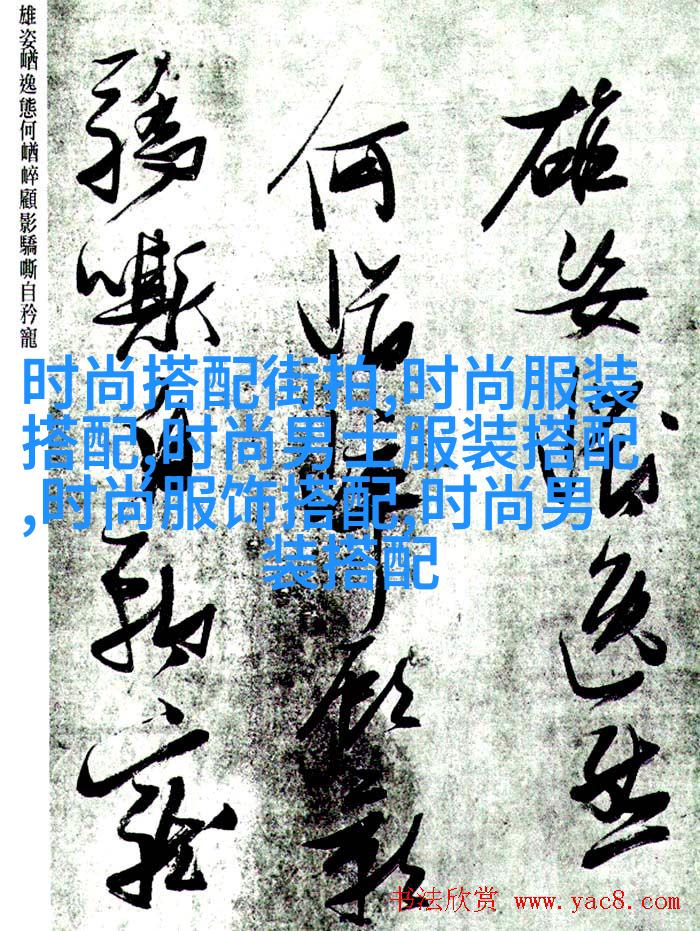 雄姿崷逸態
何崷崪顧影
驕嘶自矜寵
雄姿崷逸態何崷崪顧影驕嘶自矜寵
时尚搭配街拍,时尚服装
搭配,时尚男士服装搭配
,时尚服饰搭配,时尚男
装搭配
书法欣赏 www.yac8.com